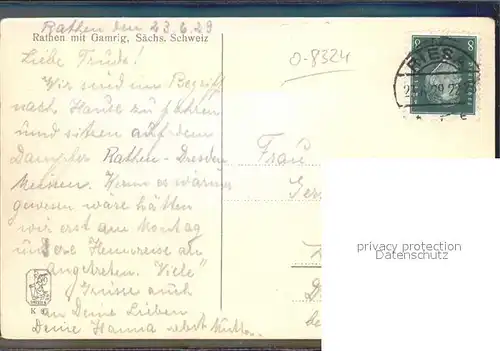 Rathen den 23.6.29
Rathen mit Gamrig, Sächs. Schweiz
Liebe Trude!
Wir sind im Begriff
nach Hause zu fahren
und sitzen auf dem
Dampfer Rathen - Dresden
Meissen. Wenn es wärmer
gewesen wäre hätten
wir erst am Montag
unsere Heimreise
angetreten. Viele
Grüsse auch
an Deine Lieben
Deine Hanna nebst
0-8324
8 8
RIESA
Frau
privacy protection
Datenschutz
K